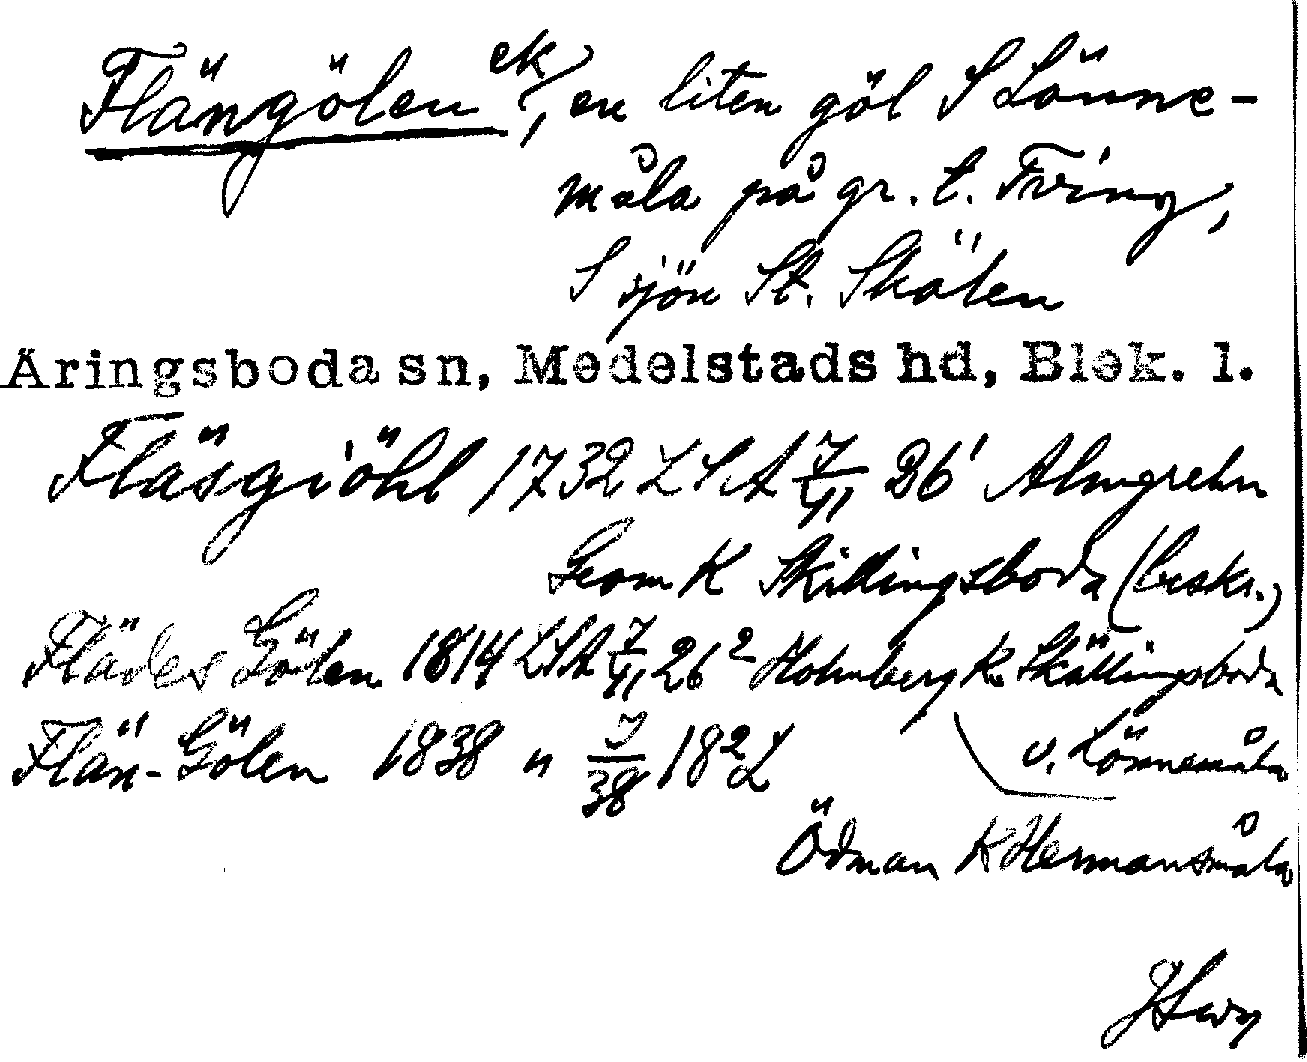 Fläng̈ölen ek, en liten göl S Lönne-
måla på gr. t. Tving,
S sjön St. Skälen
Äringsboda sn, Medelstads hd, Blek. l.
Fläsgiöhl 1732 LSA 7/11 26' Almgrehn
Geom K Skillingsboda (beskr.)
Flädes Gölen 1814 LSA 7/11 26² Holmberg K. Skällingsboda
Flän-Gölen 1838 " 7/38 18² L
o. Lönnemåla
Ödman K Hermansmåla